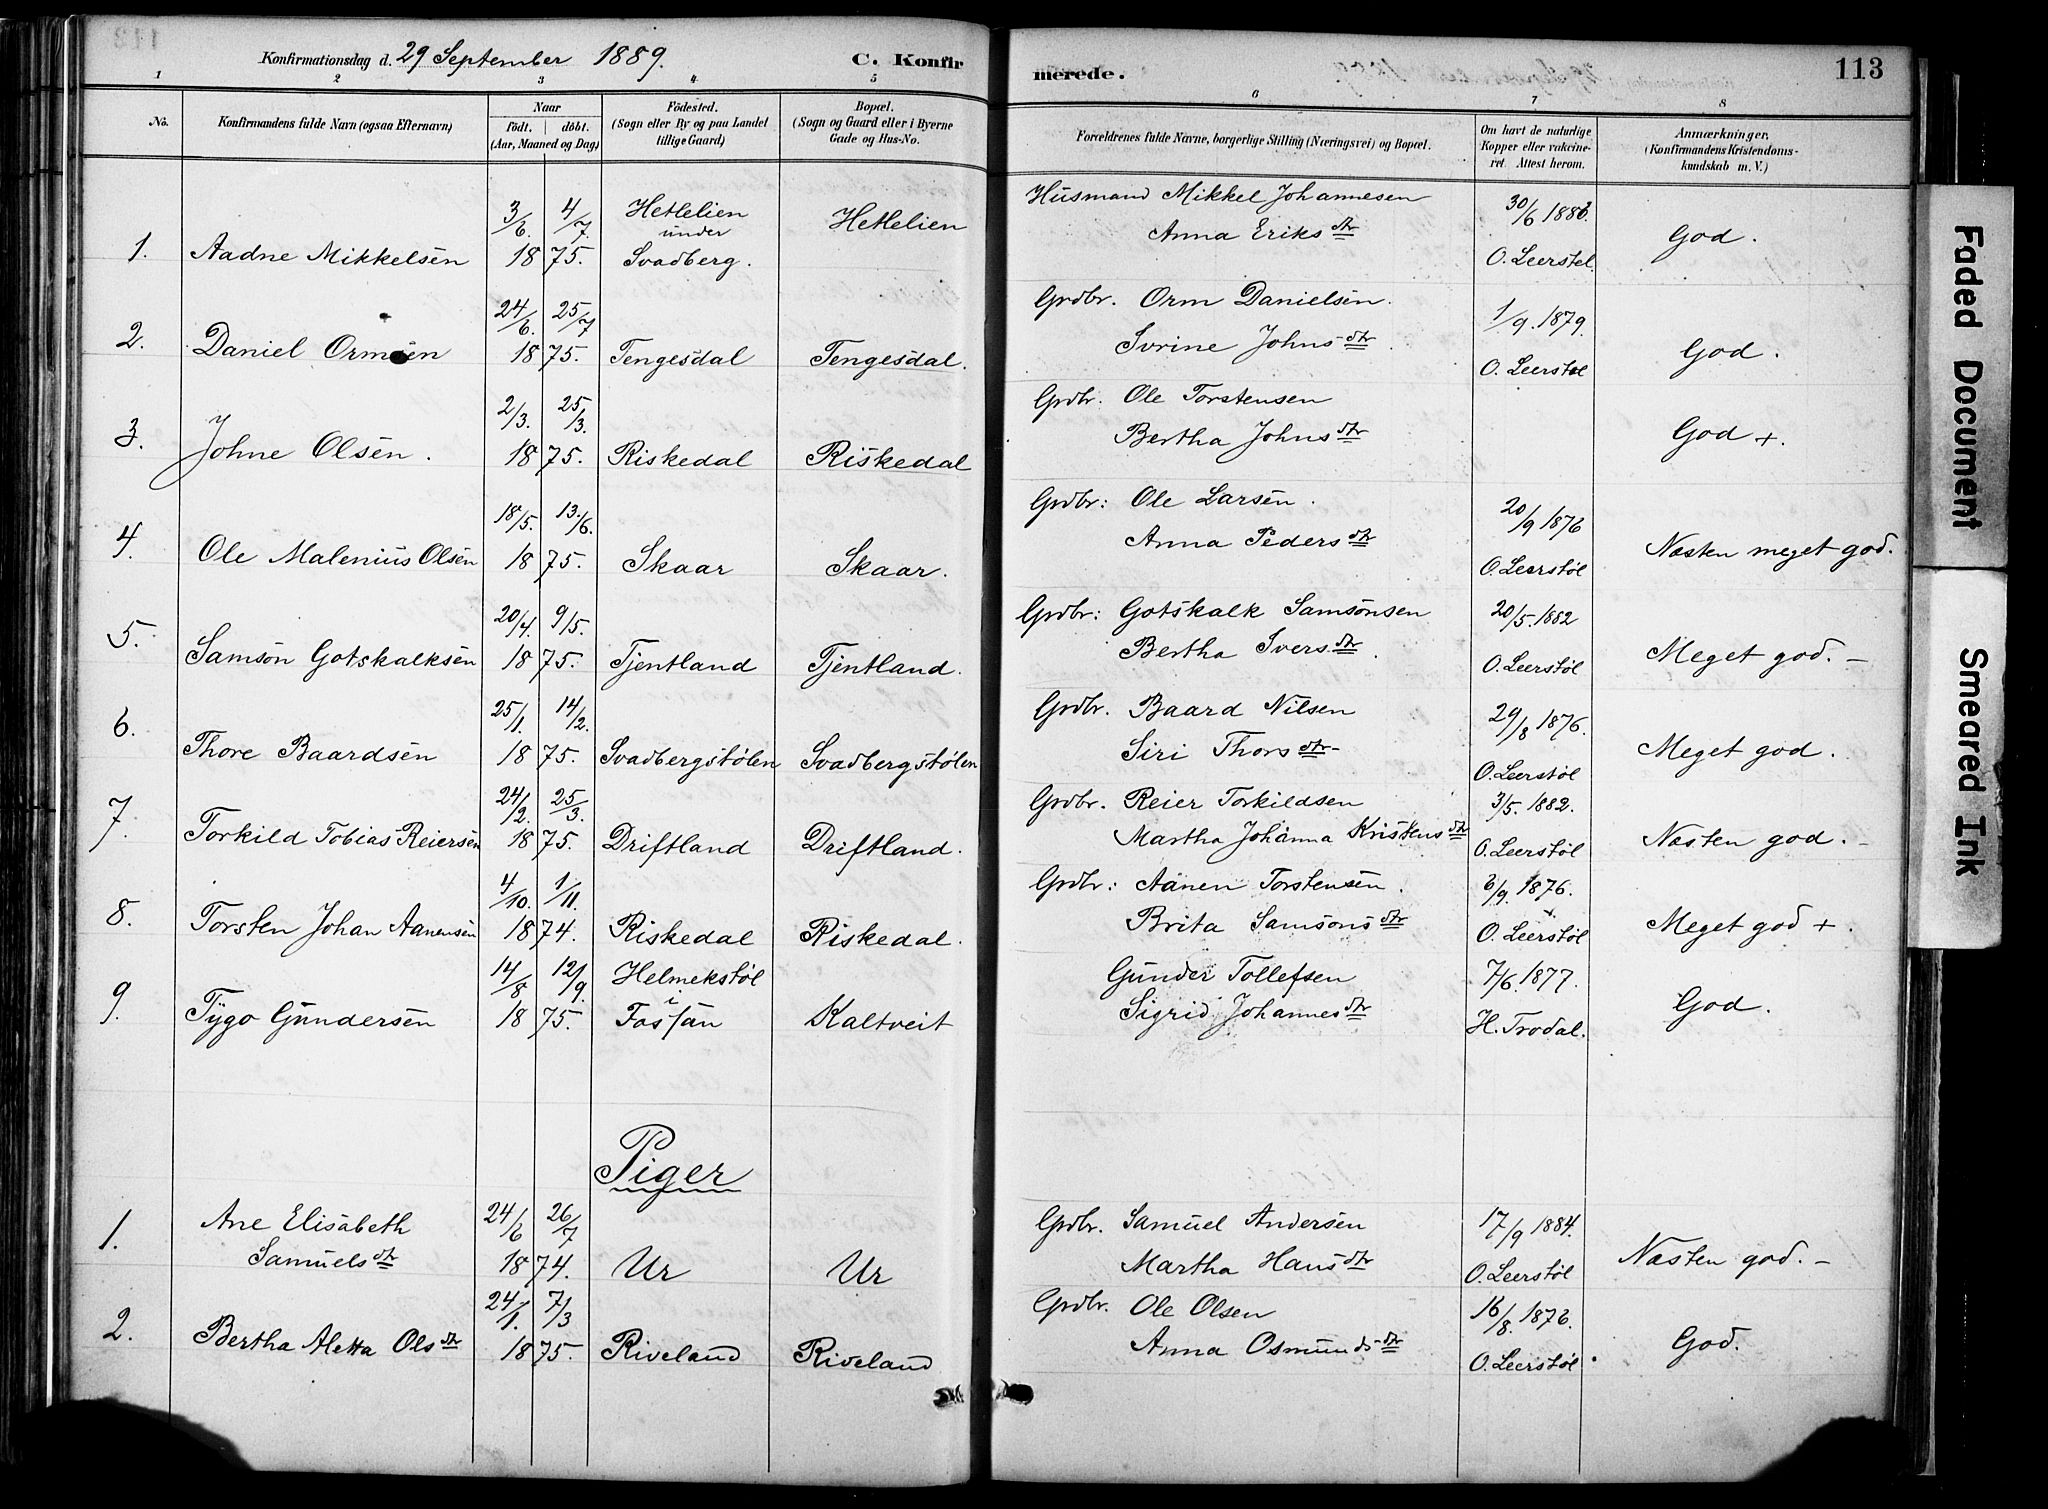 Konfirmationsdag d. 29 September 1889. C. Konfirmerede. 113
1 2 3 4 5 6 7 8
No. Konfirmandens fulde Navn (ogsaa Efternavn) Naar födt. döbt. (Aar, Maaned og Dag) Födested. (Sogn eller By og paa Landet tillige Gaard) Bopæl. (Sogn og Gaard eller i Byerne Gade og Hus-No. Forældrenes fulde Navne, borgerlige Stilling (Næringsvei) og Bopæl. Om havt de naturlige Kopper eller vakcineret. Attest herom. Anmærkninger, (Konfirmandens Kristendomskundskab m. V.)
3/6. 4/7. Hetlelien under Hetlelien Husmand Mikkel Johannesen 30/6 188
1. Aadne Mikkelsen 1875. Svadberg. Anna Eriksdtr O. Leerstøl. God.
24/6. 25/7 Grdbr. Orm Danielsen. 1/9. 1879.
2. Daniel Ormsen 1875. Tengesdal Tengesdal. Ivrine Johnsdtr. O. Leerstøl God.
2/3. 25/3. Grdbr. Ole Torstensen
3. Johne Olsen. 1875. Riskedal Riskedal Bertha Johnsdtr God +.
18/5. 13/6. Grdbr: Ole Larsen. 20/9 1876
4. Ole Malenius Olsen 1875. Skaar Skaar. Anna Pedersdtr O. Leerstøl Næsten meget god.
20/4. 9/5. Grdbr: Gotskalk Samsonsen 20/5. 1882
5. Samson Gotskalksen 1875. Tjentland Tjentland. Bertha Iversdtr. O. Leerstøl Meget god. –
25/1. 14/2. Grdbr. Baard Nilsen 29/8 1876.
6. Thore Baardsen 1875. Svadbergstølen Svadbergstølen Siri Thorsdtr- O. Leerstøl Meget god.
24/2. 25/3. Grdbr. Reier Torkildsen 3/5. 1882.
7. Torkild Tobias Reiersen 1875. Driftland Driftland. Martha Johanna Kristensdtr O. Leerstøl Næsten god. –
4/10. 1/11. Grdbr: Aanen Torstensen. 6/9. 1876.
8. Torsten Johan Aanensen 1874. Riskedal Riskedal. Brita Samsonsdtr O. Leerstøl Meget god +.
14/8 12/9. Helmekstøl i Gunder Tollefsen 7/6. 1877.
9. Tygo Gundersen 1875. Fossan Kaltveit Sigrid Johannesdtr H. Trodal. God.
Piger
24/6 26/7 Grdbr. Samuel Andersen 17/9 1884.
1. Ane Elisabeth Samuelsdtr 1874. Ur Ur Martha Hansdtr O. Leerstøl Næsten god. –
24/1. 7/3 Grdbr. Ole Olsen 16/8. 1876.
2. Bertha Aletta Olsdtr 1875. Riveland Riveland Anna Osmundsdtr O. Leerstøl. God.
Faded Document
Smeared Ink